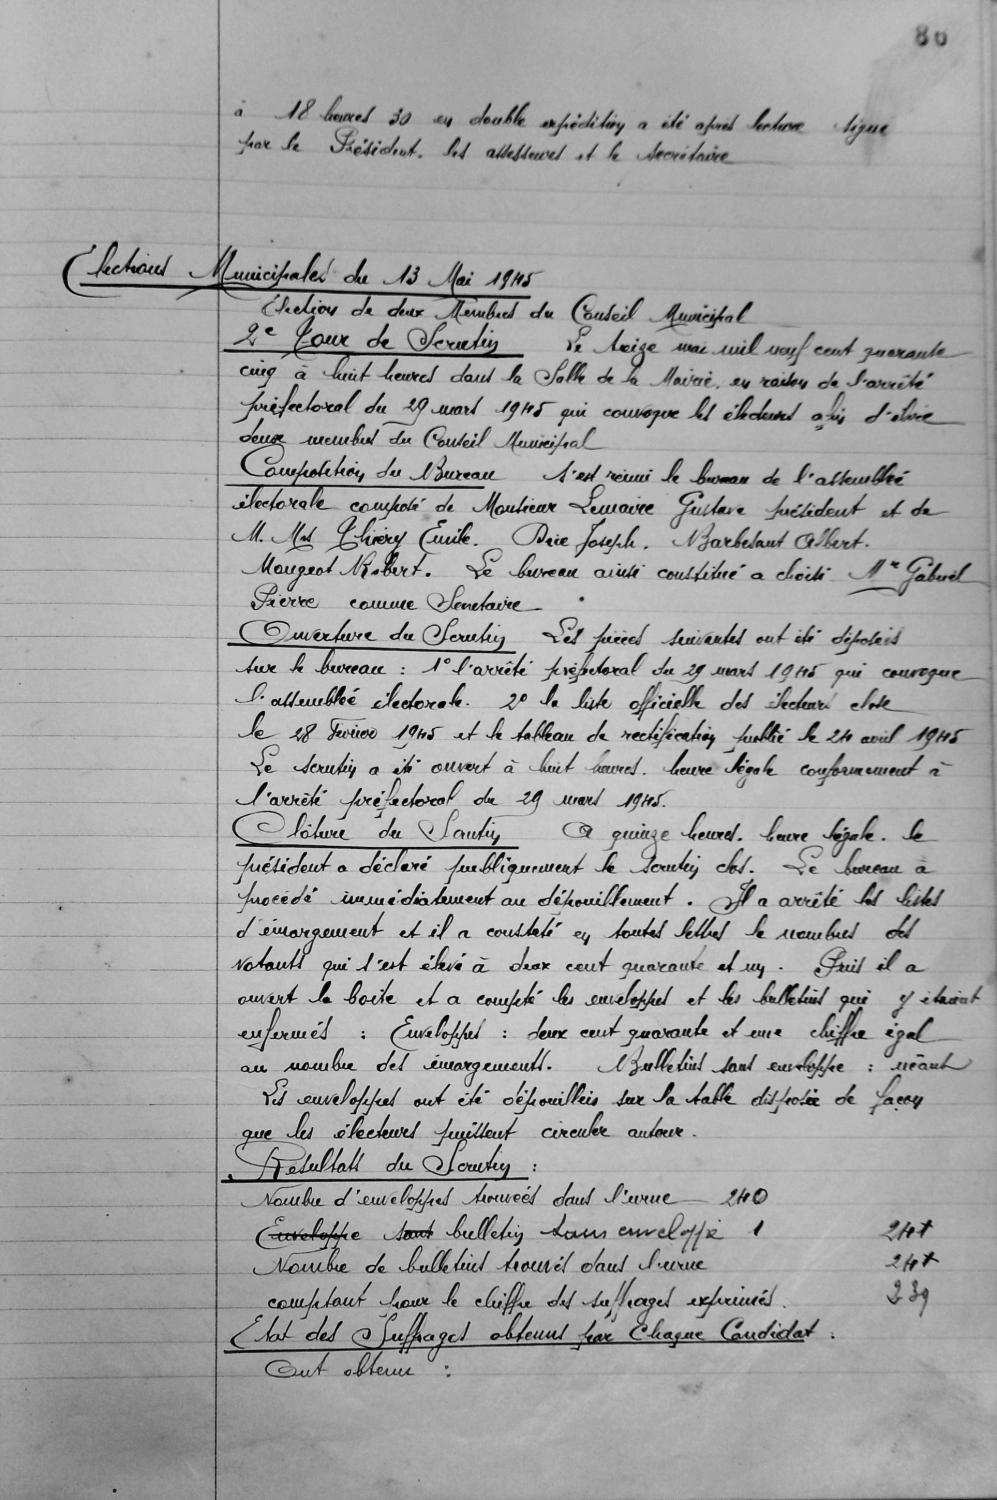 86
à 18 heures 30 en double expédition a été après lecture signé
par le Président. les assesseurs et le secrétaire
Elections Municipales du 13 Mai 1945
Election de deux Membres du Conseil Municipal
2e Tour de Scrutin Le treize mai mil neuf cent quarante
cinq à huit heures dans la Salle de la Mairie, en raison de l'arrêté
préfectoral du 29 mars 1945 qui convoque les électeurs afin d'élire
deux membres du Conseil Municipal
Composition du Bureau s'est réuni le bureau de l'assemblée
électorale composé de Monsieur Lemaire Gustave président et de
M. Mrs Thiéry Emile. Joseph. Albert.
Mougeot Robert. Le bureau ainsi constitué a choisi Mr Gabriel
Pierre comme Secretaire
Ouverture du Scrutin Les pièces suivantes ont été déposées
sur le bureau : 1° l'arrêté préfectoral du 29 mars 1945 qui convoque
l'assemblée électorale. 2° la liste officielle des électeurs close
le 28 1945 et le tableau de rectification publié le 24 avril 1945
Le scrutin a été ouvert à huit heures. heure légale conformement à
l'arrêté préfectoral du 29 mars 1945.
Clôture du Scrutin A quinze heures. heure légale. le
président a déclaré publiquement le scrutin clos. Le bureau à
procédé immédiatement au dépouillement. Il a arrêté les listes
d'émargement et il a constaté en toutes lettres le nombres des
votants qui s'est élevé à deux cent quarante et un. Puis il a
ouvert la boite et a compté les enveloppes et les bulletins qui y étaient
enfermés : Enveloppes : deux cent quarante et une chiffre égal
au nombre des émargements. Bulletins sans enveloppe : néant
Les enveloppes ont été dépouillées sur la table disposée de façon
que les électeurs puissent circuler autour.
Résultats du Scrutin :
Nombre d'enveloppes trouvées dans l'urne 240
Enveloppe sans bulletin sans enveloppe 1 241
Nombre de bulletins trouvés dans l'urne 241
comptant pour le chiffre des suffrages exprimés. 239
Etat des Suffrages obtenus par Chaque Candidat :
Ont obtenu :